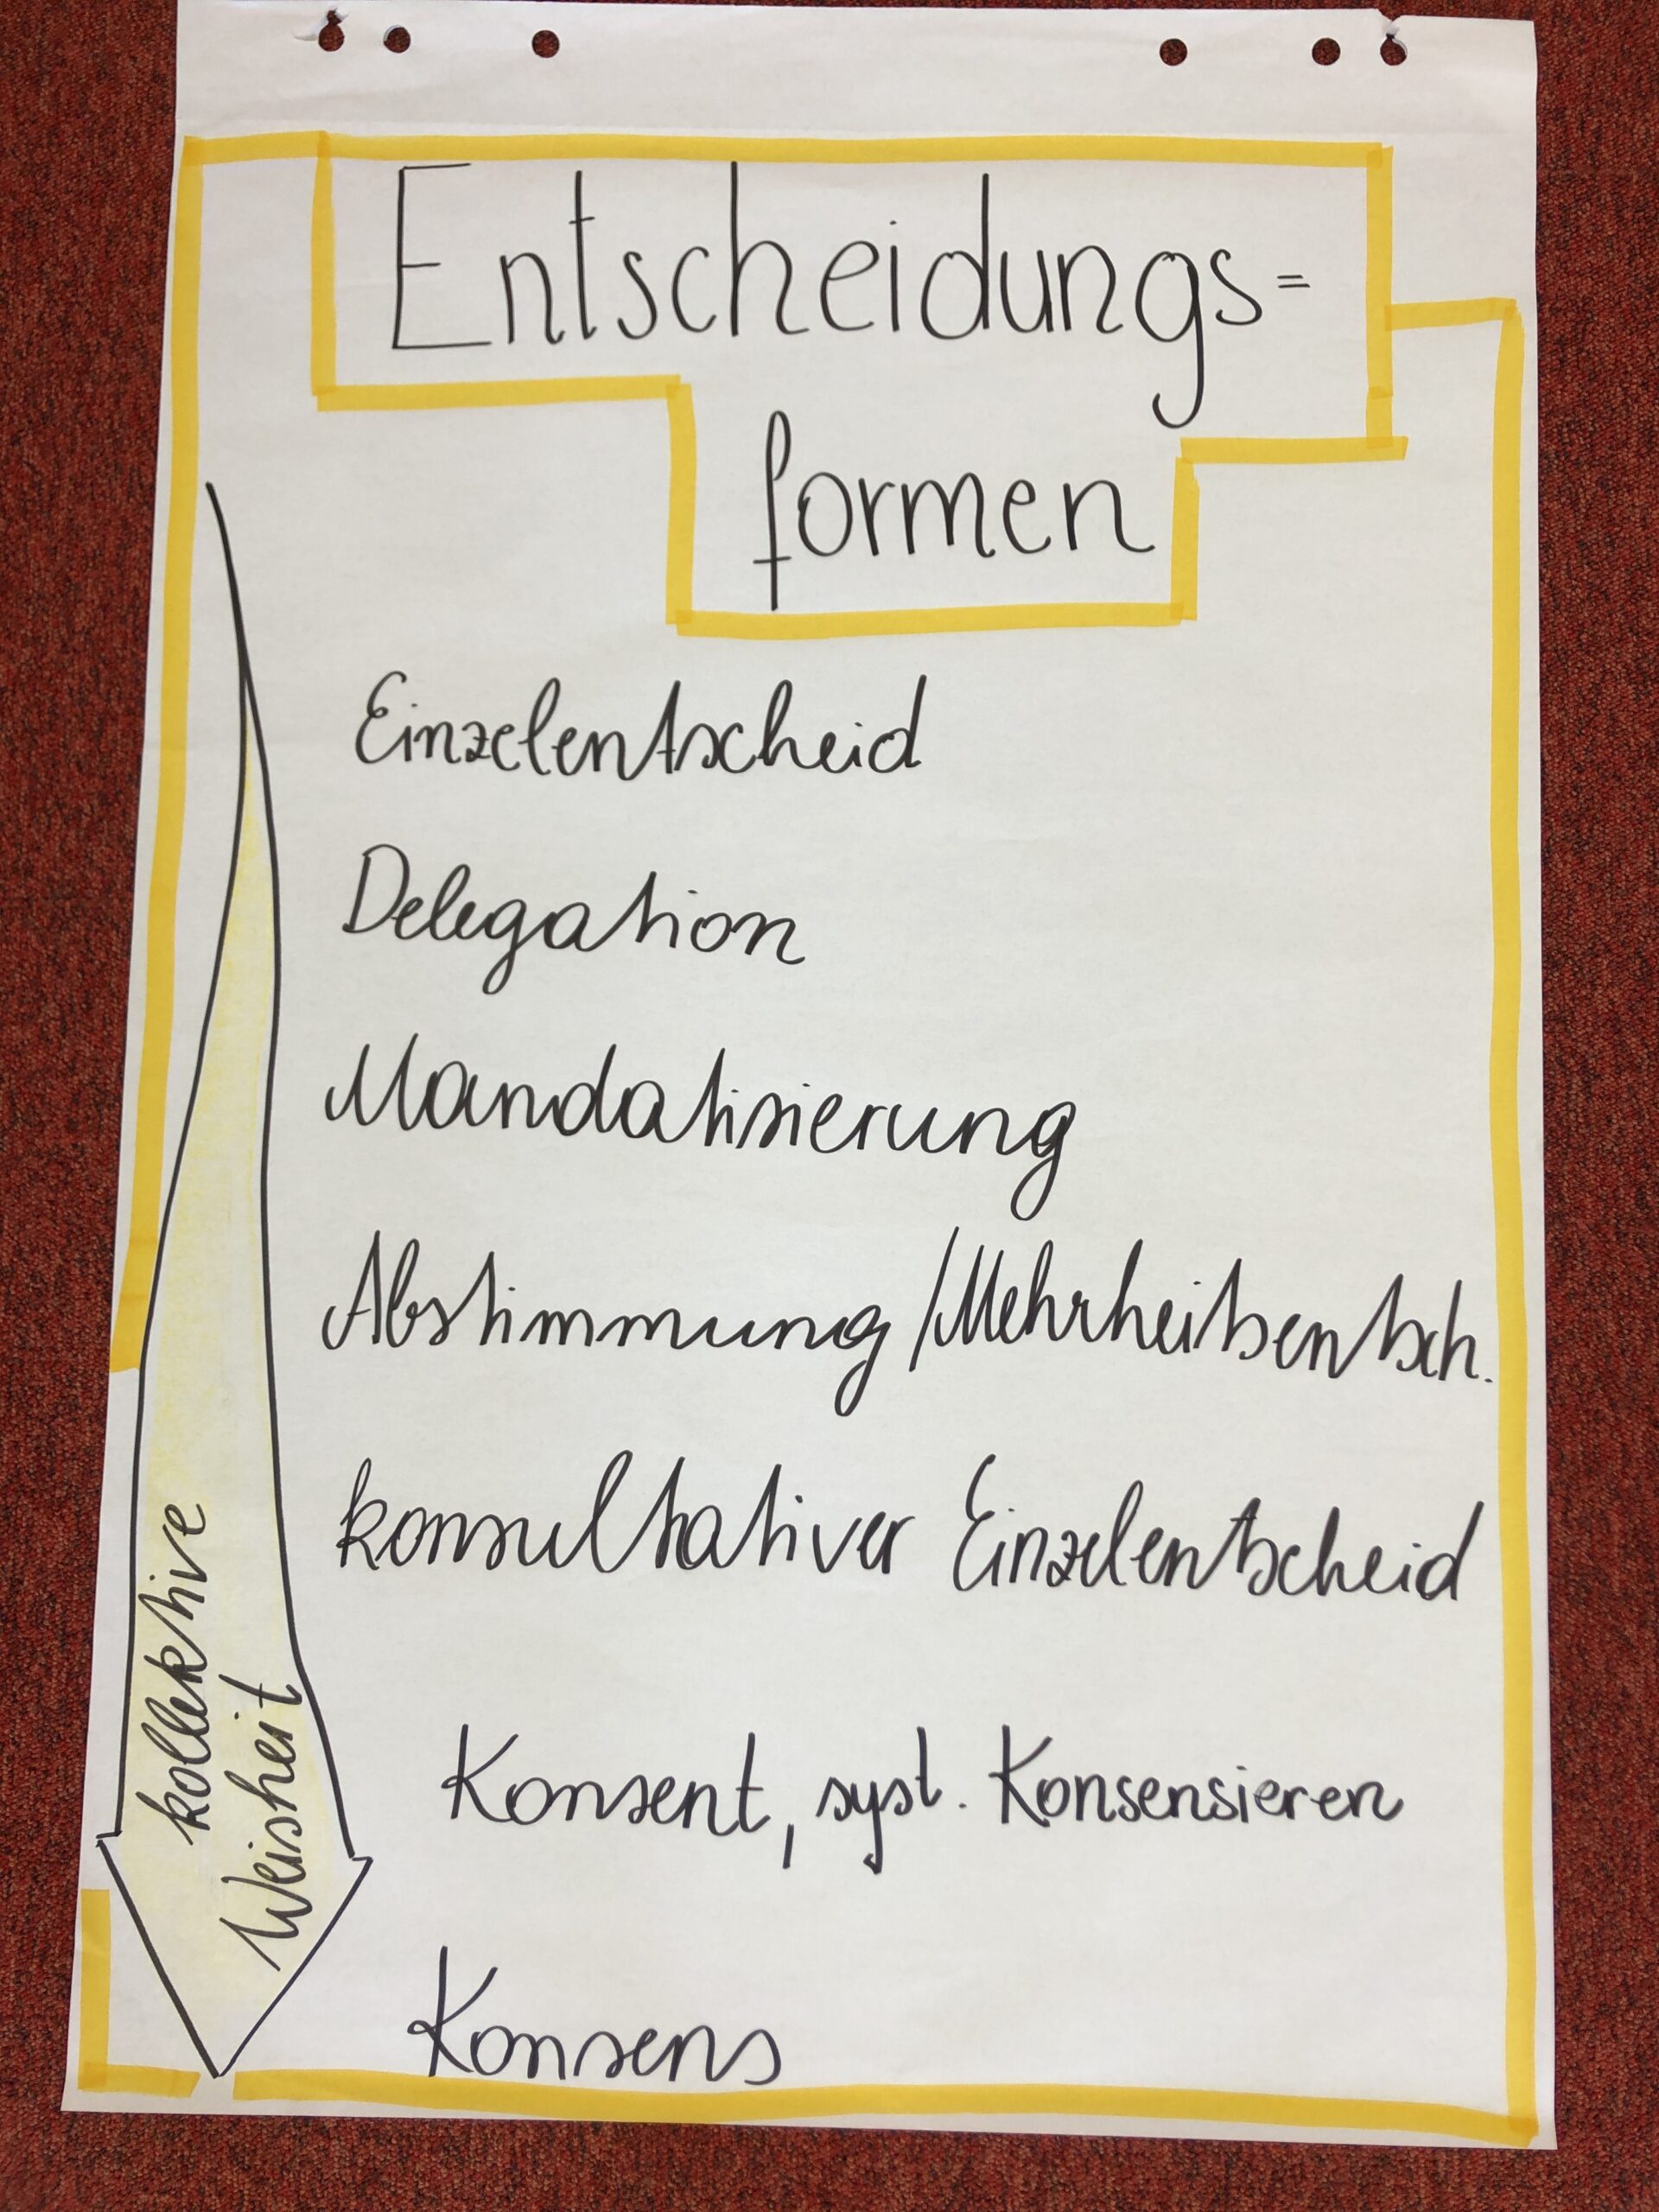 Entscheidungs=
formen
Einzelentscheid
Delegation
Mandatisierung
Abstimmung/Mehrheitsentsch.
konsultativer Einzelentscheid
Konsent, syst. Konsensieren
Konsens
kollektive
Weisheit